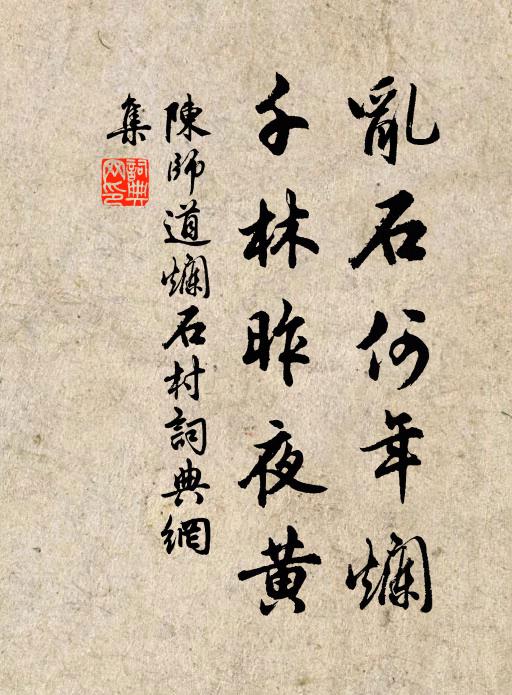 亂石何年爛
千林昨夜黃
陳師道爛石村詞典網
集
詞典網印